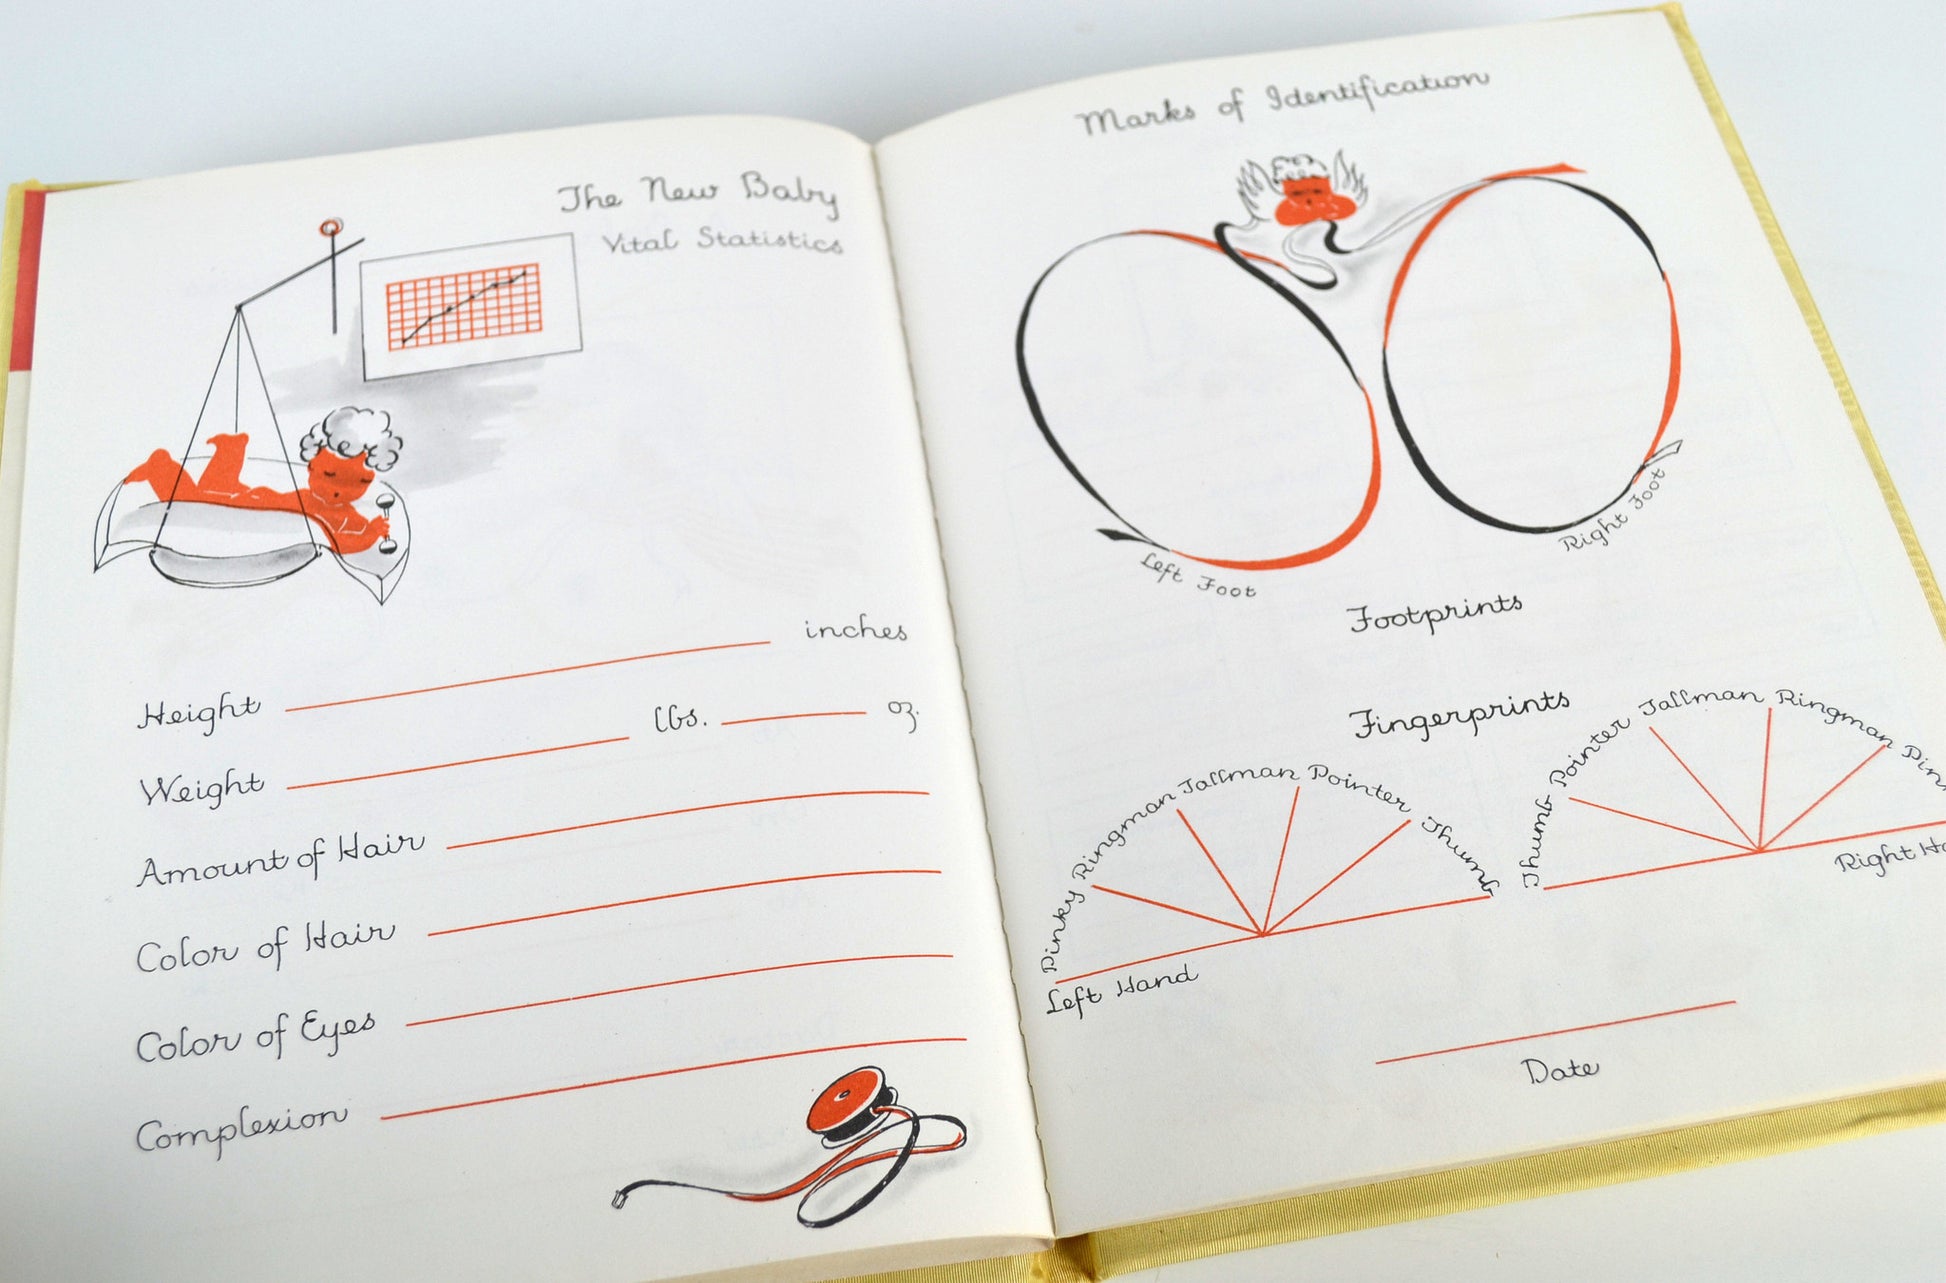 The New Baby
Vital Statistics
Height inches
Weight lbs. oz.
Amount of Hair
Color of Hair
Color of Eyes
Complexion
Marks of Identification
Left Foot
Right Foot
Footprints
Fingerprints
Pinky Ringman Tallman Pointer Thumb
Left Hand
Thumb Pointer Tallman Ringman
Right
Date